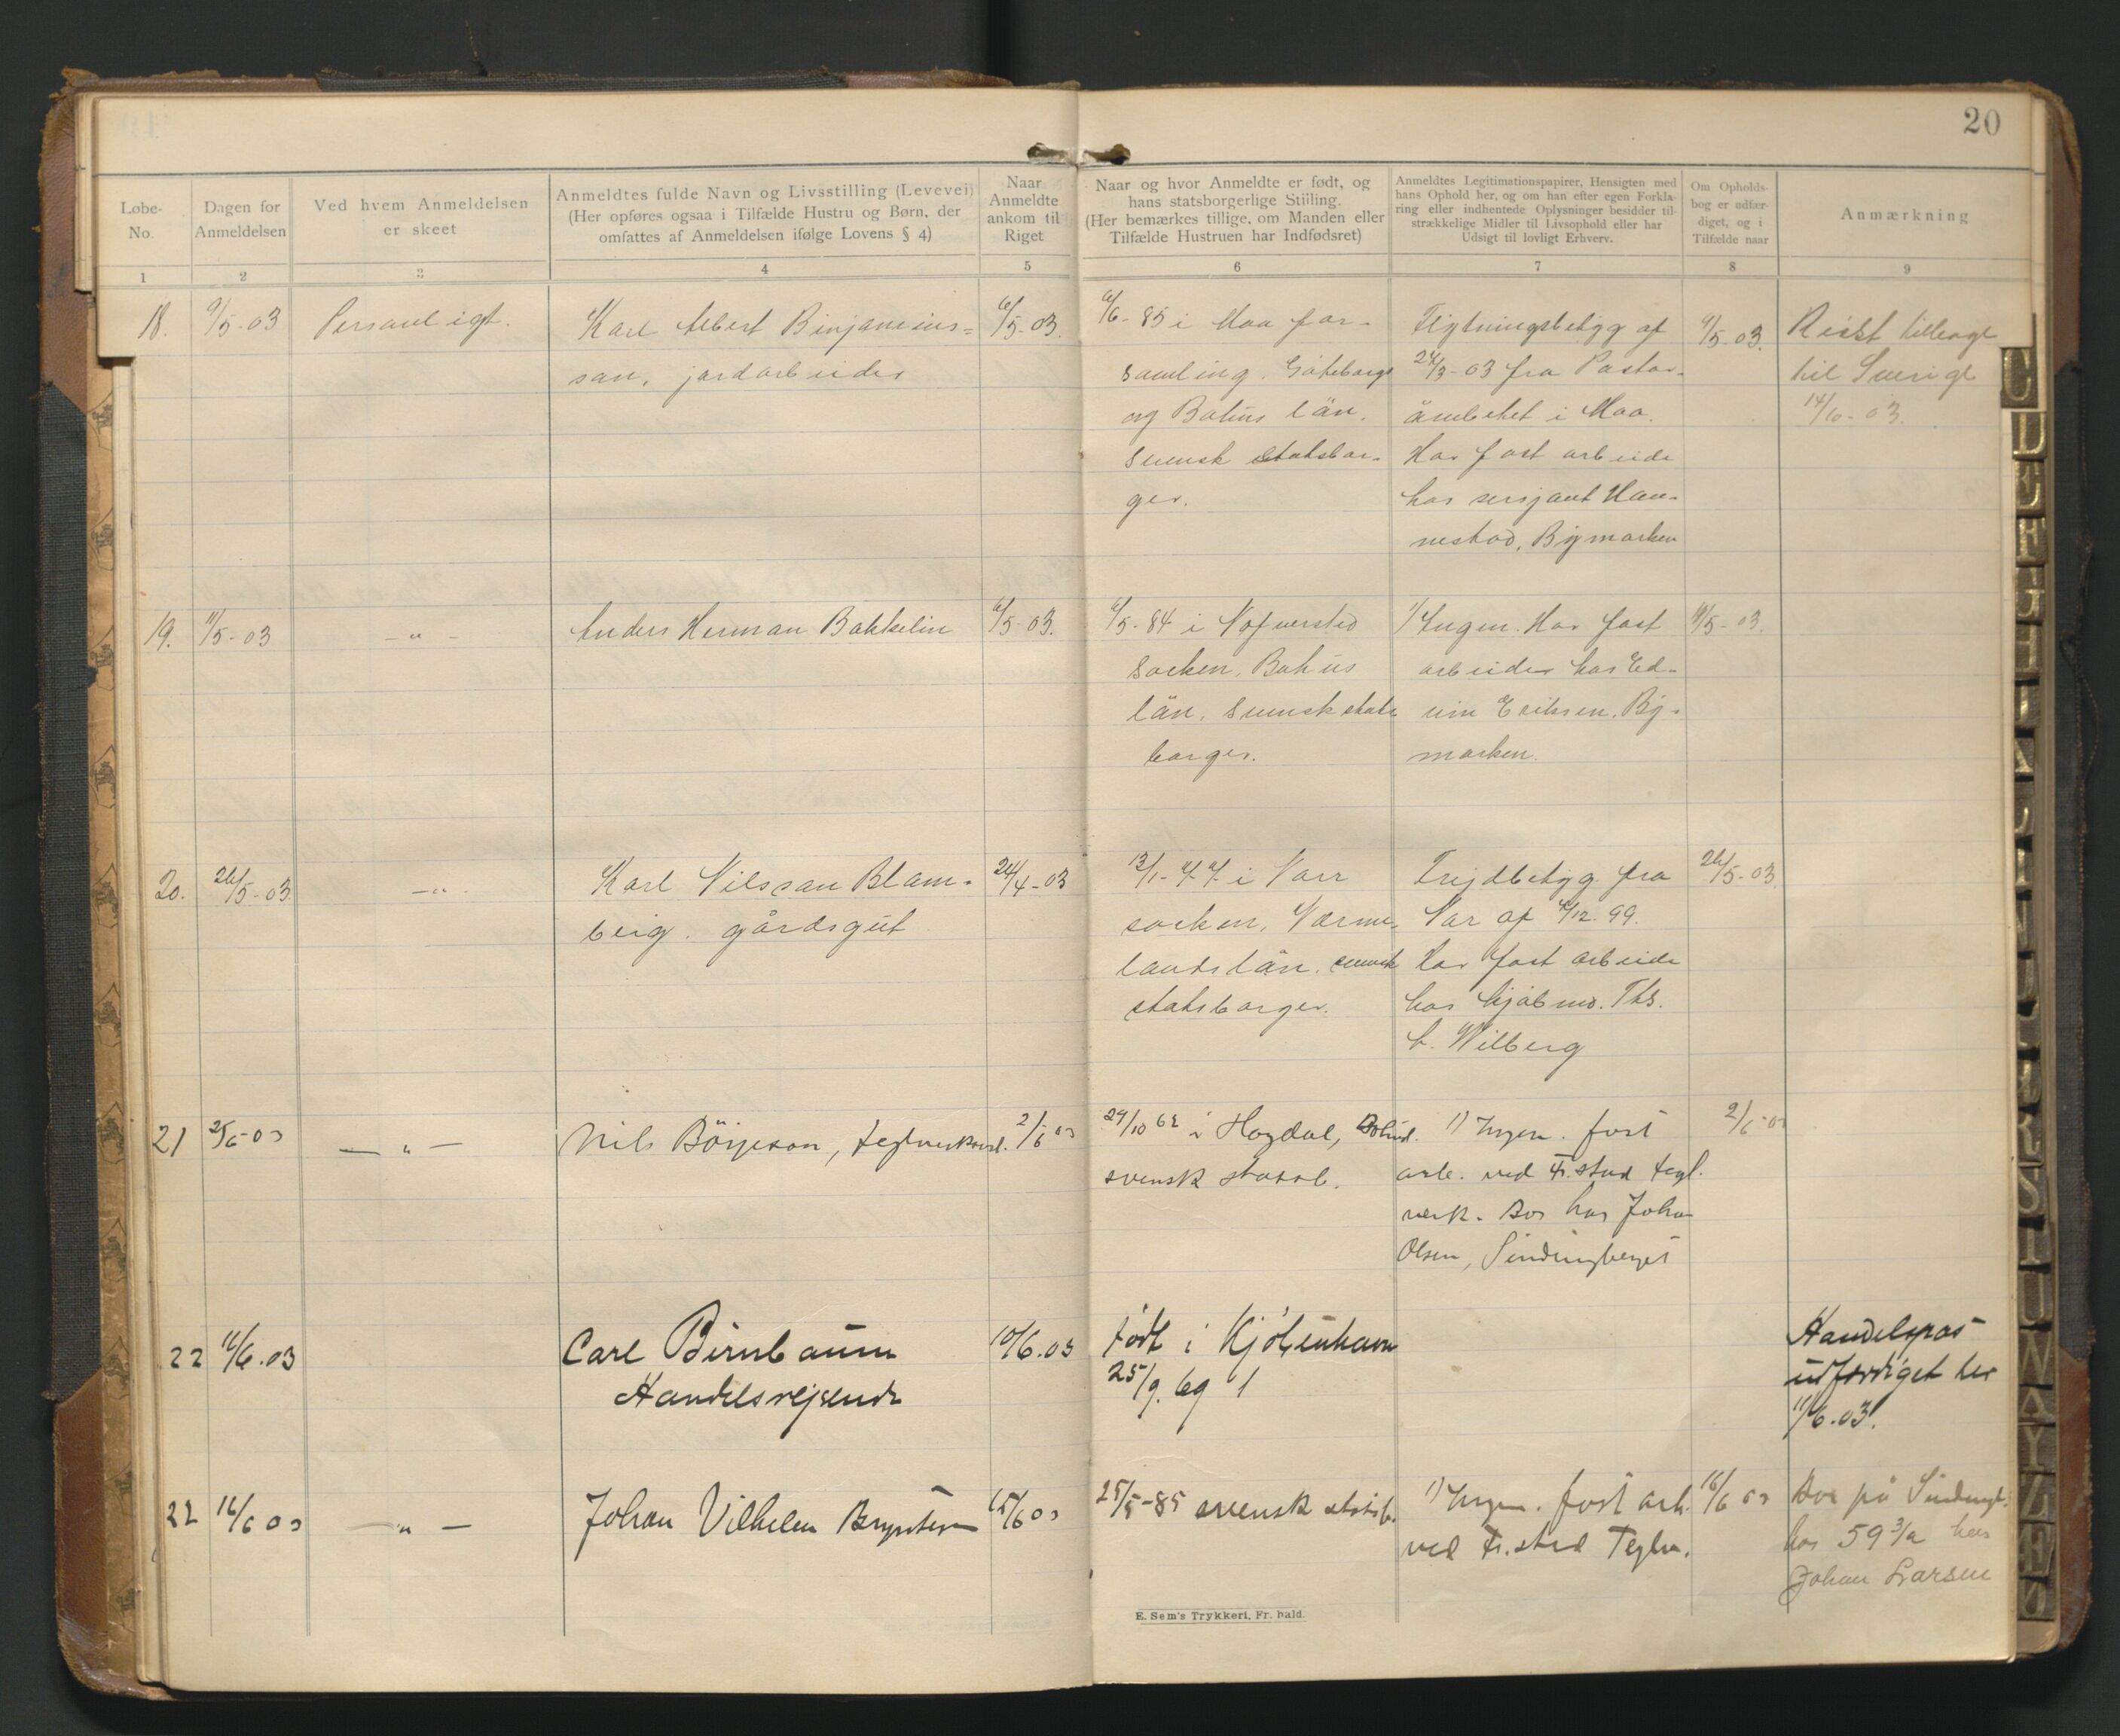 20
Løbe-
No.
Dagen for
Anmeldelsen
Ved hvem Anmeldelsen
er skeet
Anmeldtes fulde Navn og Livsstilling (Levevei)
(Her opføres ogsaa i Tilfælde Hustru og Børn, der
omfattes af Anmeldelsen ifølge Lovens § 4)
Naar
Anmeldte
ankom til
Riget
Naar og hvor Anmeldte er født, og
hans statsborgerlige Stilling.
(Her bemærkes tillige, om Manden eller
Tilfælde Hustruen har Indfødsret)
Anmeldtes Legitimationspapirer, Hensigten med
hans Ophold her, og om han efter egen Forkla-
ring eller indhentede Oplysninger besidder til-
strækkelige Midler til Livsophold eller har
Udsigt til lovligt Erhverv.
Om Opholds-
bog er udfær-
diget, og i
Tilfælde naar
Anmærkning
1 2 3 4 5 6 7 8 9
18. 9/5-03 Personligt. Karl Albert Binjamins= 6/5-03. 6/6-85 i Moo for- Flytningsbetyg af 9/5-03. Reist tilbage
son, jordarbeider samling, Göteborgs 24/3-03 fra Pastor- til Sverige
og Bohus län. ämbetet i Moo. 14/10-03.
svensk statsbor- Har fast arbeide
ger. hos sersjant Han-
nestad, Bymarken
19. 11/5-03 -"- Anders Herman Bakkelin 6/5-03. 6/5-84 i Nafversted 1/ Ingen. Har fast 11/5-03.
Socken, Bohus arbeider hos Ed-
län, svensk stats vin Eriksen, By-
borger. marken.
20. 26/5-03 -"- Karl Nilsson Blom- 24/4-03 13/1-77 i Norr Frejdbetyg fra 26/5-03.
berg. gårdsgut socken, Værm- Nor af /12-99.
lands län. svensk Har fast arbeide
statsborger. hos kjøbmd. Ths.
C. Wilberg
21 2/6-03 -"- Nils Börjeson, teglverksarb. 2/6 03 29/10 62 i Hogdal, Bohusl. 1) Ingen. fast 2/6-03
svensk statsb. arb. ved Fr.stad tegl.
verk. Bor hos Johan
Olsen, Sindingberget
22 11/6.03 Carl Birnbaum 10/6.03 født i Kjøbenhavn Handelspas
Handelsrejsende 25/9.69 1 udfærdiget her
11/6.03.
22 16/6 03 -"- Johan Vilhelm Bryntesen 15/6 03 25/5-85 svensk statsb. 1) Ingen. fast arb. 16/6 03 Bor på Sindingb.
ved Fr.stad Teglv. hos 59 3/a hos
Johan Larsen
E. Sem's Trykkeri, Fr. hald.